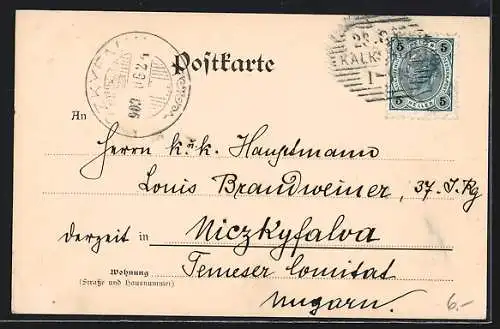 Postkarte
28. 8
KALK
1
5 5
5 HELLER 5
903 AUG 24
An
Herrn k.u.k. Hauptmann
Louis Brandweiner, 37. I. Rg
derzeit in Niczkyfalva
Wohnung
(Straße und Hausnummer)
Temeser Comitat
Ungarn.
6.-